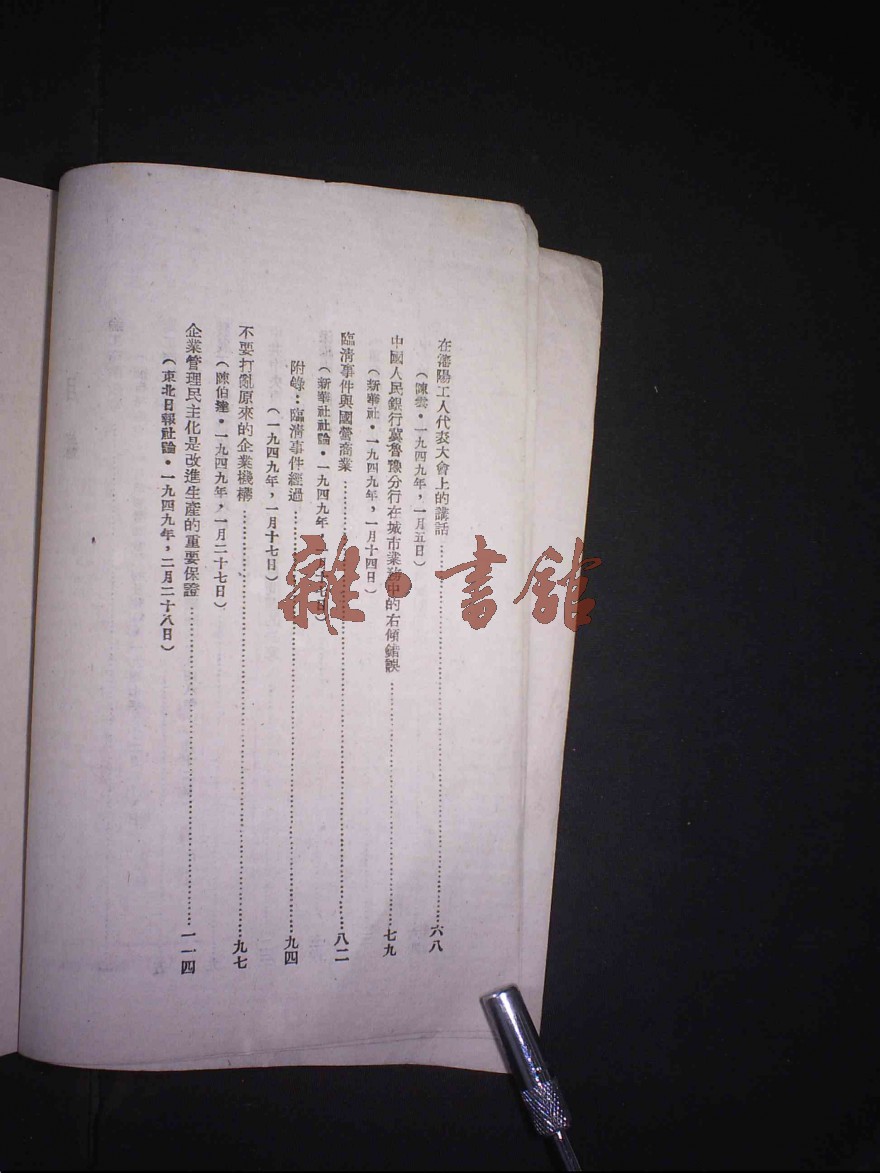 在瀋陽工人代表大會上的講話……六八
（陳雲・一九四九年，一月五日）
中國人民銀行冀魯豫分行在城市業務中的右傾錯誤……七九
（新華社・一九四九年，一月十四日）
臨清事件與國營商業……八二
（新華社社論・一九四九年，一月十七日）
附錄：臨清事件經過……九四
（一九四九年，一月十七日）
不要打亂原來的企業機構……九七
（陳伯達・一九四九年，一月二十七日）
企業管理民主化是改進生產的重要保證……一一四
（東北日報社論・一九四九年，二月二十八日）
雜・書館